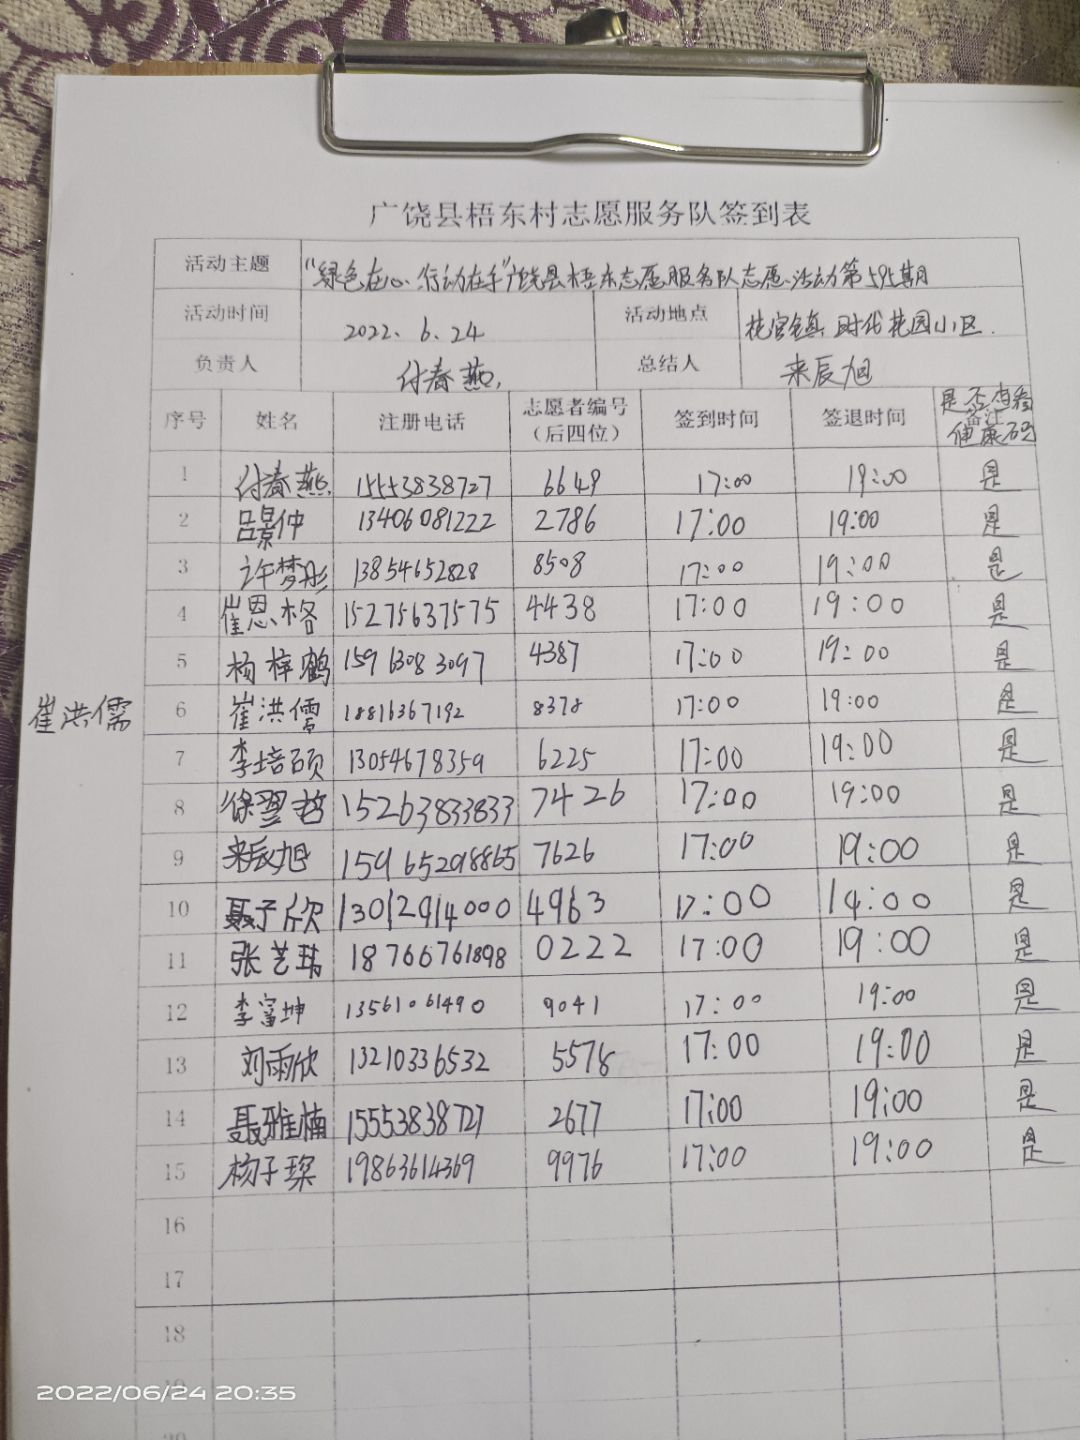 广饶县梧东村志愿服务队签到表
活动主题 “绿色在心、行动在手”广饶县梧东志愿服务队志愿活动第595期
活动时间 2022、6、24 活动地点 花官镇时代花园小区.
负责人 付春燕 总结人 来辰旭
序号 姓名 注册电话 志愿者编号（后四位） 签到时间 签退时间 备注 是否查看健康码
1 付春燕 15553838727 6649 17:00 19:00 是
2 吕景仲 13406081222 2786 17:00 19:00 是
3 许梦彤 13854652828 8508 17:00 19:00 是
4 崔恩格 15275637575 4438 17:00 19:00 是
5 杨梓鹤 15963083097 4387 17:00 19:00 是
崔洪儒 6 崔洪儒 18816367192 8378 17:00 19:00 是
7 李培硕 13054678359 6225 17:00 19:00 是
8 徐翌哲 15263833833 7426 17:00 19:00 是
9 来辰旭 15965298865 7626 17:00 19:00 是
10 聂子欣 13012914000 4963 17:00 14:00 是
11 张艺 18766761898 0222 17:00 19:00 是
12 李富坤 13561061490 9041 17:00 19:00 是
13 刘雨欣 13210336532 5578 17:00 19:00 是
14 聂雅楠 15553838727 2677 17:00 19:00 是
15 杨子琛 19863614369 9976 17:00 19:00 是
16
17
18
19
2022/06/24 20:35
20